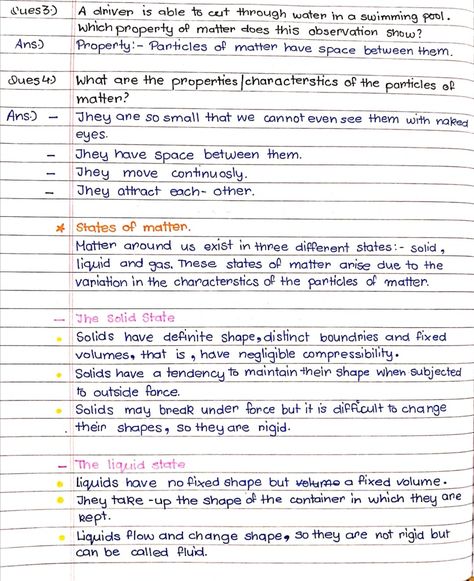 Ques3:) A driver is able to cut through water in a swimming pool.
Which property of matter does this observation show?
Ans:) Property:- Particles of matter have space between them.
Ques4:) What are the properties/characterstics of the particles of
matter?
Ans:) - They are so small that we cannot even see them with naked
eyes.
- They have space between them.
- They move continuosly.
- They attract each-other.
* States of matter.
Matter around us exist in three different states:- solid,
liquid and gas. These states of matter arise due to the
variation in the characterstics of the particles of matter.
- The Solid State
• Solids have definite shape, distinct boundries and fixed
volumes, that is, have negligible compressibility.
• Solids have a tendency to maintain their shape when subjected
to outside force.
• Solids may break under force but it is difficult to change
their shapes, so they are rigid.
- The liquid state
• liquids have no fixed shape but volume a fixed volume.
• They take-up the shape of the container in which they are
kept.
• Liquids flow and change shape, so they are not rigid but
can be called fluid.